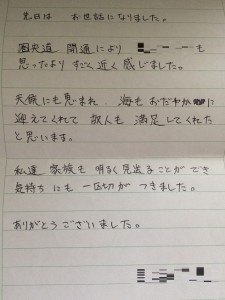 先日は お世話になりました。
圏央道 開通により も
思ったより すごく近く感じました。
天候にも恵まれ 海もおだやかに
迎えてくれて 故人も 満足してくれた
と思います。
私達 家族も 明るく見送ることができ
気持ちにも 一区切がつきました。
ありがとうございました。